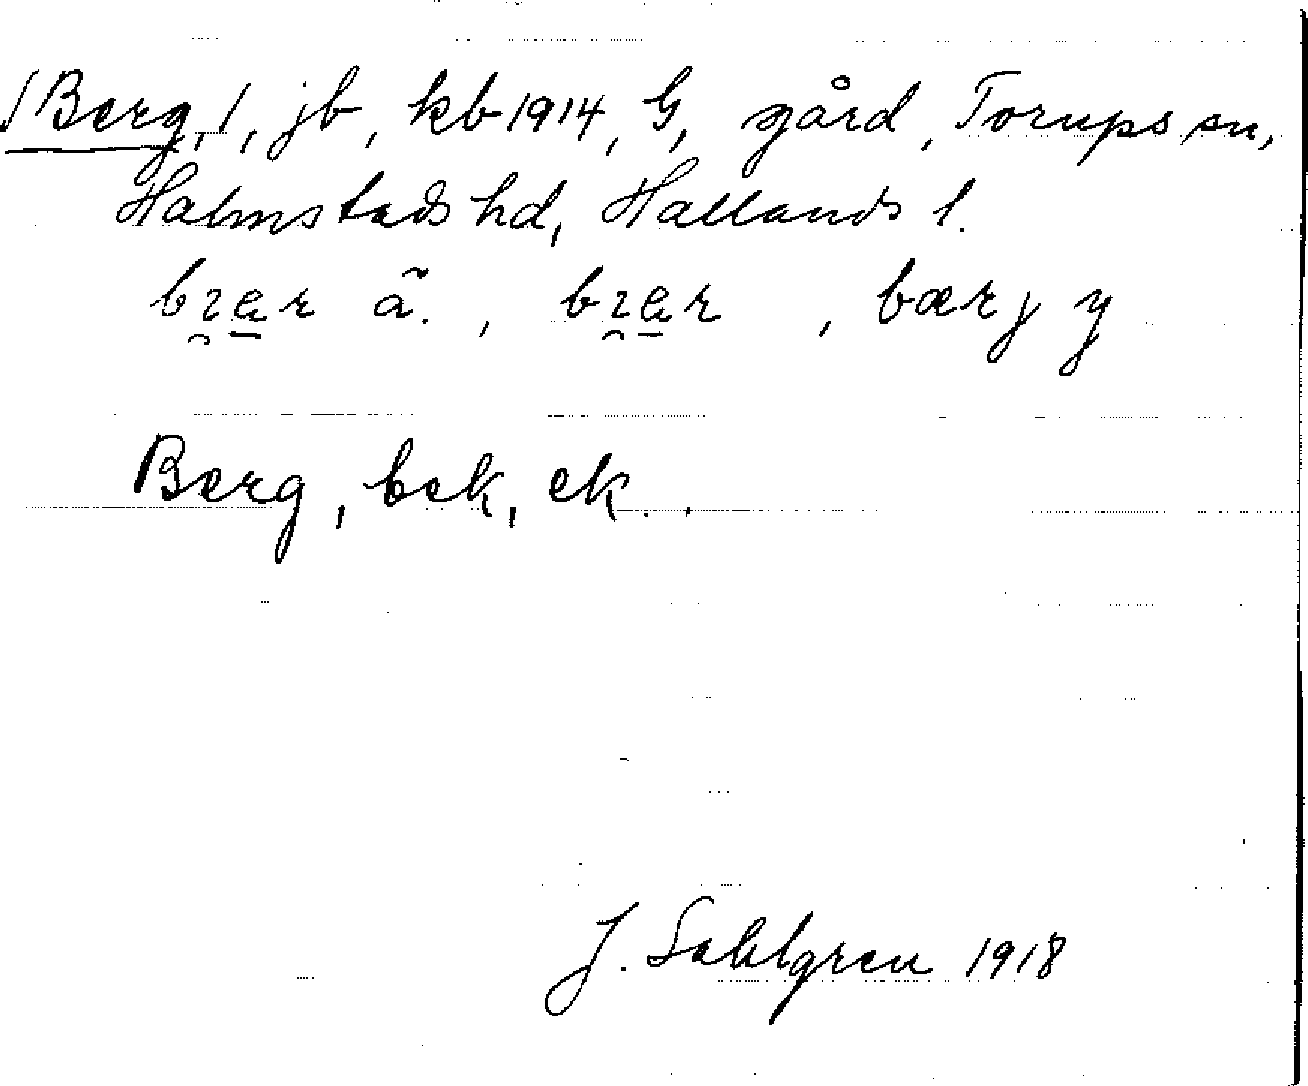 /Berg,/, jb, kb 1914, G, gård, Torups sn,
Halmstads hd, Hallands l.
bɿær ã., bɿær, bærj y
Berg, bek, ek.,
J. Sahlgren 1918